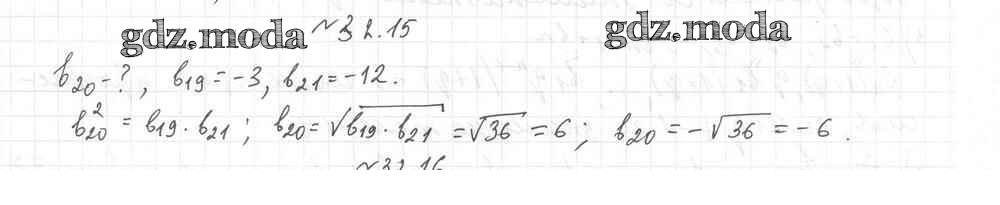 gdz.moda №32.15 gdz.moda
b₂₀ - ?, b₁₉ = -3, b₂₁ = -12.
b₂₀² = b₁₉ · b₂₁; b₂₀ = √(b₁₉ · b₂₁) = √36 = 6; b₂₀ = -√36 = -6.
№32.16